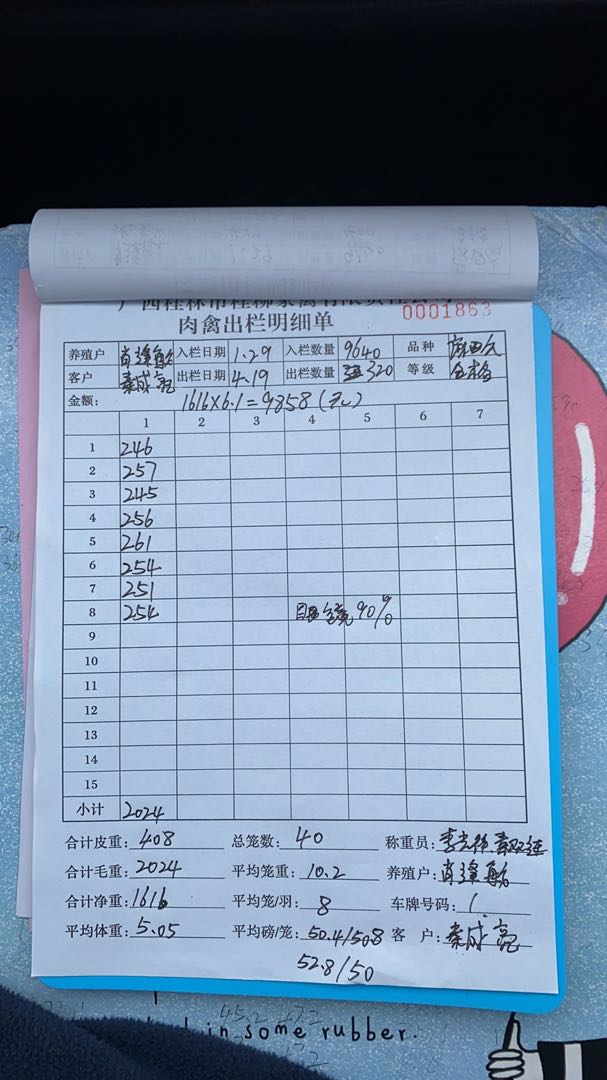 0001863
肉禽出栏明细单
养殖户 肖逢 入栏日期 1.29 入栏数量 9640 品种
客户 秦成亮 出栏日期 4.19 出栏数量 320 等级 合格
金额： 1616×6.1=9858(元)
1 2 3 4 5 6 7
1 246
2 257
3 245
4 256
5 261
6 254
7 251
8 254 眼 90%
9
10
11
12
13
14
15
小计 2024
合计皮重：408 总笼数：40 称重员：李
合计毛重：2024 平均笼重：10.2 养殖户：肖逢
合计净重：1616 平均笼/羽：8 车牌号码：1.
平均体重：5.05 平均磅/笼：50.4/50.8 客 户：秦成亮
52.8/50
in some rubber.